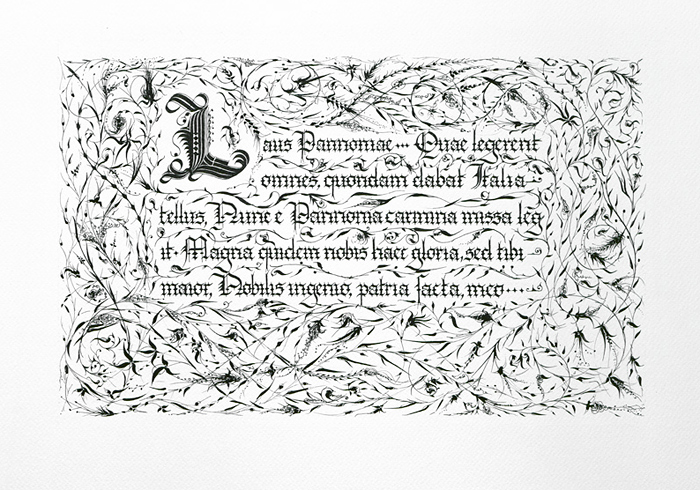 Laus Pannoniae... Quae legerent
omnes, quondam dabat Itala
tellus, Nunc e Pannonia carmina missa leg
it. Magna quidem nobis haec gloria, sed tibi
maior, Nobilis ingenio, patria facta, meo...